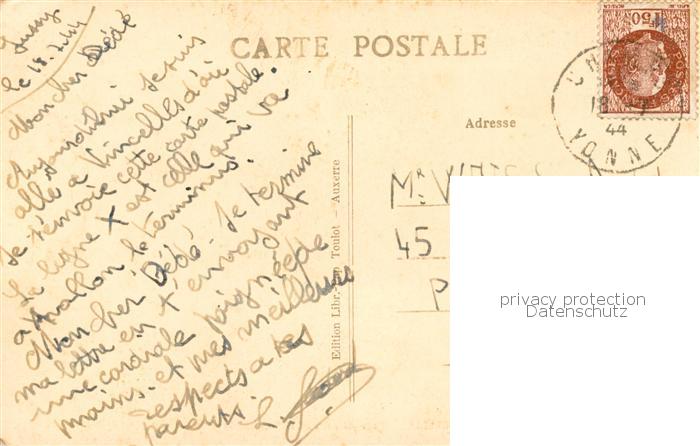 Jussy
le 18.7.44
CARTE POSTALE
1F50
YONNE
18
44
Adresse
Mon cher Dédé
Aujourd'hui je suis
allé à Vincelles d'où
je t'envoie cette carte postale.
La ligne X est celle qui va
à Avallon, le terminus.
Mon cher Dédé. Je termine
ma lettre en t'envoyant
une cordiale poignée de
mains. et mes meilleurs
respects à tes
parents.
Edition Libr. Toulot - Auxerre
Mr
45
P
privacy protection
Datenschutz